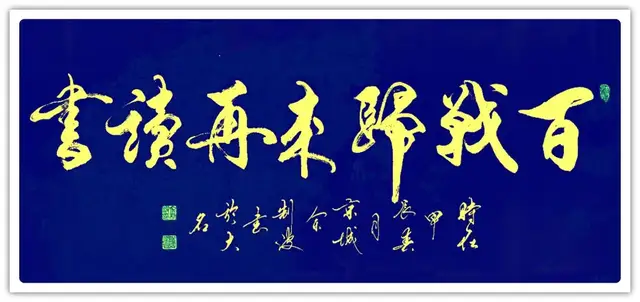 百戰歸來再讀書
時在
甲
辰春
月
京城
於大
名